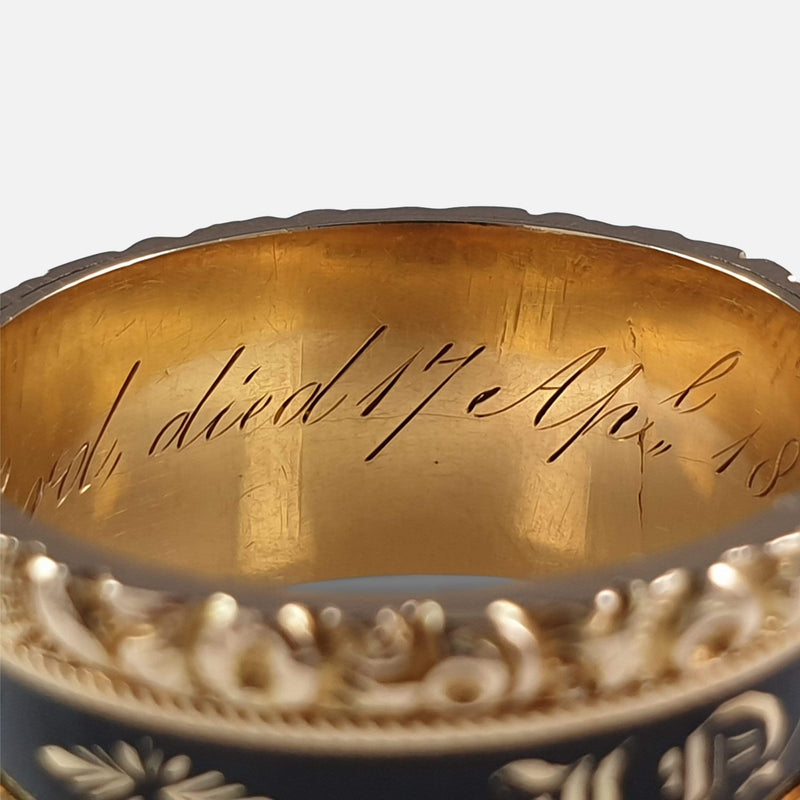 died 17 Apˡ 18